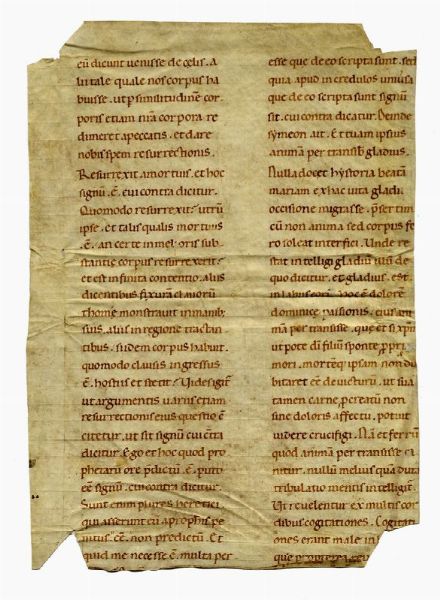 eũ dicunt uenisse de cęlis. a
lii tale quale nos corpus ha
buisse. ut p̱ similitudinẽ cor
poris etiam n̄ra corpora re
dimeret a peccatis. et daret
nobis spem resurrectionis.
Resurrexit a mortuis. et hoc
signũ. ẽ. cui contra dicitur.
Quomodo resurrexit? utrũ
ipse. et talis qualis mortuus
ẽ. an certe in melioris sub
stantię corpus resurrexerit?
et est infinita contentio. aliis
dicentibus fixurã clauorũ
thome monstrauit in manib;
suis. aliis in regione tractan
tibus. si idem corpus habuit.
quomodo clausis ingressus
ẽ. hostiis et stetit? Uidesigit̃
ut argumentis uariis etiam
resurrectionis eius questio c̃
citetur. ut sit signũ cui c̃tra
dicitur. Ego et hoc quod pro
phetarũ ore p̃dictũ. ẽ. puto
eẽ signũ. cui contra dicitur.
Sunt enim plures heretici
qui asserunt eũ a prophis pe
nitus. cẽ. non predictũ. Et
quid me necesse. ẽ. multa per
esse que de eo scripta sunt. sed
quia apud incredulos uniuersa
que de eo scripta sunt signũ
sit. cui contra dicatur. Deinde
symeon ait. Et tuam ipsius
animã per transib̃ gladius.
Nulla docet hystoria beatã
mariam ex hac uita gladii
occisione migrasse. p̃ser tim
cũ non anima sed corpus fe
rro soleat interfici. Unde re
stat in telligi gladiũ illũ de
quo dicitur. et gladius. est.
in labiis eorũ. hoc ẽ dolorẽ
dominicę passionis. eius ani
mã per transisse. que et si xp̃m
ut pote dĩ filiũ sponte p̱pria
mori. mortẽq; ipsam non du
bitaret eẽ deuicturũ. ut sua
tamen carne. p̱creatũ non
sine doloris affectu. potuit
uidere crucifigi. Nã et ferrũ
quod animã per transisse ca
nitur. nullũ melius quã dura
tribulatio mentis in telligit̃.
Ut reuelentur ex multis cor
dibus cogitationes. Cogitati
ones erant male in
que propterea re